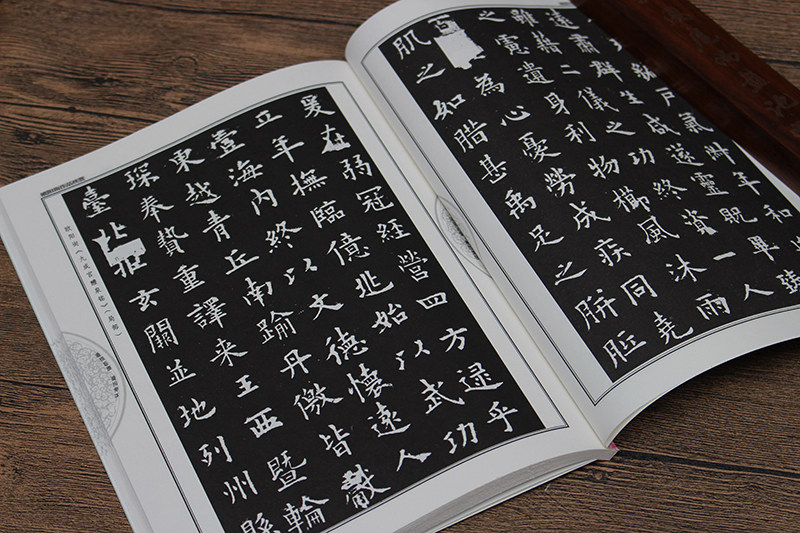 爰在弱冠經營四方逮乎
立年撫臨億兆始以武功
壹海內終以文德懷遠人
東越青丘南踰丹徼皆獻
琛奉贄重譯來王西暨輪
臺北拒玄闕並地列州縣
歐陽詢《九成宮醴泉銘》（局部）
編戶氣淑年和
遠肅群生咸遂靈貺畢臻
雖藉二儀之功終資一人
之慮遺身利物櫛風沐雨
百為心憂勞成疾同堯
肌之如腊甚禹足之胼胝